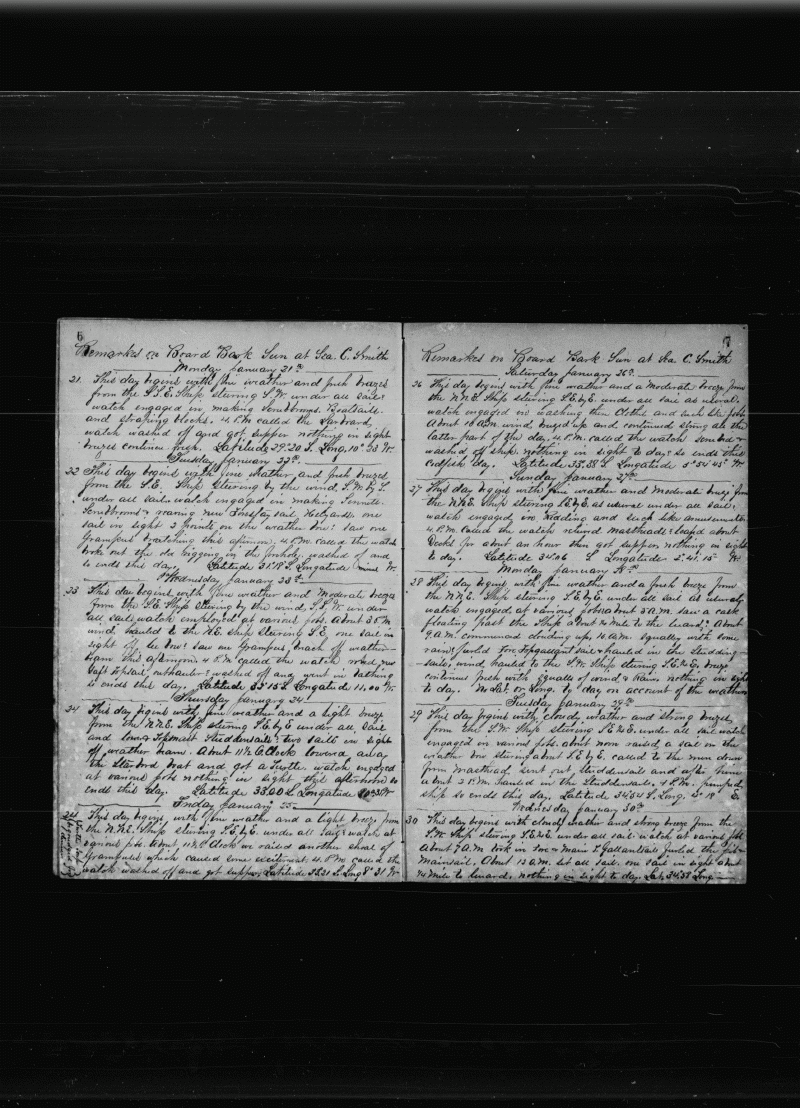 6
Remarkes on Board Bark Sun at Sea C. Smith
Monday January 21st
21. This day begins with fine weather and fresh breezes
from the S.S.E. Ship stering S.W. under all sail
watch engaged in making
and scraping blocks. 4 P.M. called the Larboard
watch washed of and got supper nothing in sight
breezes continue fresh. Latitude 29.20 S. Long. 10° 33 W.
Tuesday January 22nd
22 This day begins with fine weather, and fresh breezes
from the S.E. Ship stering by the wind, S.W. by S.
under all sail. watch engaged in making Sennete.
& new Foretop sail Helyards. one
sail in sight 2 points on the weather bow: saw one
Grampus breaching this afternoon. 4 P.M. called the watch
broke out the old rigging in the forehole, washed of and
so ends this day. Latitude 31°18 S. Longatude W.
Wednesday January 23rd
23 This day begins with fine weather and Moderate breeze
from the S.E. Ship stering by the wind, S.S.W. under
all sail: watch employed at various jobs. About 3 P.M.
wind hauled to the N.E. ship stering S.E. one sail in
sight of lee bow: saw Grampus, breach of weather
beam this afternoon 4 P.M. called the watch
Gaft Topsail, outhauler: washed of and went in bathing
so ends this day. Latitude 33°15 S. Longatude 11,00 W.
Thursday January 24
24 This day begins with fine weather and a light breeze
from the N.N.E. Ship stering S.E. by E under all Sail
and lower & Topmast Studdensails: two sails in sight
of weather beam. About 11½ O,Clock lowered away
the Starbord boat and got a Turtle. watch engaged
at various jobs nothing in sight this afternoon so
ends this day. Latitude 33.00 S Longatude W
Friday January 25
This day begins, with fine weather and a light breeze from
the N.N.E. Ship stering S.E. by E. under all sail: watch at
various jobs. About 11½ O,Clock we raised another shoal of
Grampuses which caused some excitement. 4 P.M. called the
watch washed off and got supper. Latitude S. Long 8° 31 W
7
Remarkes on Board Bark Sun at Sea C. Smith
Saturday January 26th
26 This day begins with fine weather and a Moderate breeze from
the N.N.E. Ship stering S.E. by E. under all sail as useral.
watch engaged in washing their Clothes and such like jobs
About 10 A.M. wind breezed up and continued strong all the
latter part of the day. 4 P.M. called the watch &
washed of ship. nothing in sight to day: so ends this
codfish day. Latitude 33.58 S. Longatude 5° 54' 45" W.
Sunday January 27th
27 This day begins with fine weather and Moderate breeze from
the N.N.E. Ship stering S.E. by E. as useral under all sail:
watch engaged in Reading and such like amusements.
4 P.M. Called the watch relived Mastheads: about
Decks for about an hour then got supper. nothing in sight
to day. Latitude 34.06 S Longatude 2°.41'.15" W.
Monday January 28th
28 This day begins with fine weather and a fresh breeze from
the N.N.E. Ship stering S.E. by E. under all sail as useral,
watch engaged at various jobs about 5 A.M. saw a cask
floating past the ship about ¼ mile to the leuard: About
9 A.M. commenced clouding up, 10 A.M. squally with some
rain: furled Fore Topgallant sail & hauled in the Studding-
sails, wind hauled to the S.W. Ship stering S.E. ½ E, breeze
continues fresh with squalls of wind, & Rain, nothing in sight
to day. No Lat. or Long. to day on account of the weather.
Tuesday January 29th
29 This day begins with cloudy weather and strong breezes
from the S.W. Ship stering S.E. ½ E. under all sail watch
engaged in various jobs. about noon raised a sail on the
weather bow stering about S.E. by E. called to the men down
from Masthead, sent out Studdensails and after him
about 3 P.M. hauled in the Studdensails. 4 P.M. pumped
ship so ends this day. Latitude 34°54 S. Long. 3° 18' E.
Wednesday January 30th
30 This day begins with cloudy weather and strong breeze from the
S.W. Ship stering S.E. ½ E under all sail: watch at various jobs
About 7 A.M. took in Fore & Main T. Gallantsail furled the
Mainsail. About 12 A.M. Set all sail. one sail in sight about
¾ Mile to leuard. nothing in sight to day. Lat, 34.58 Long.